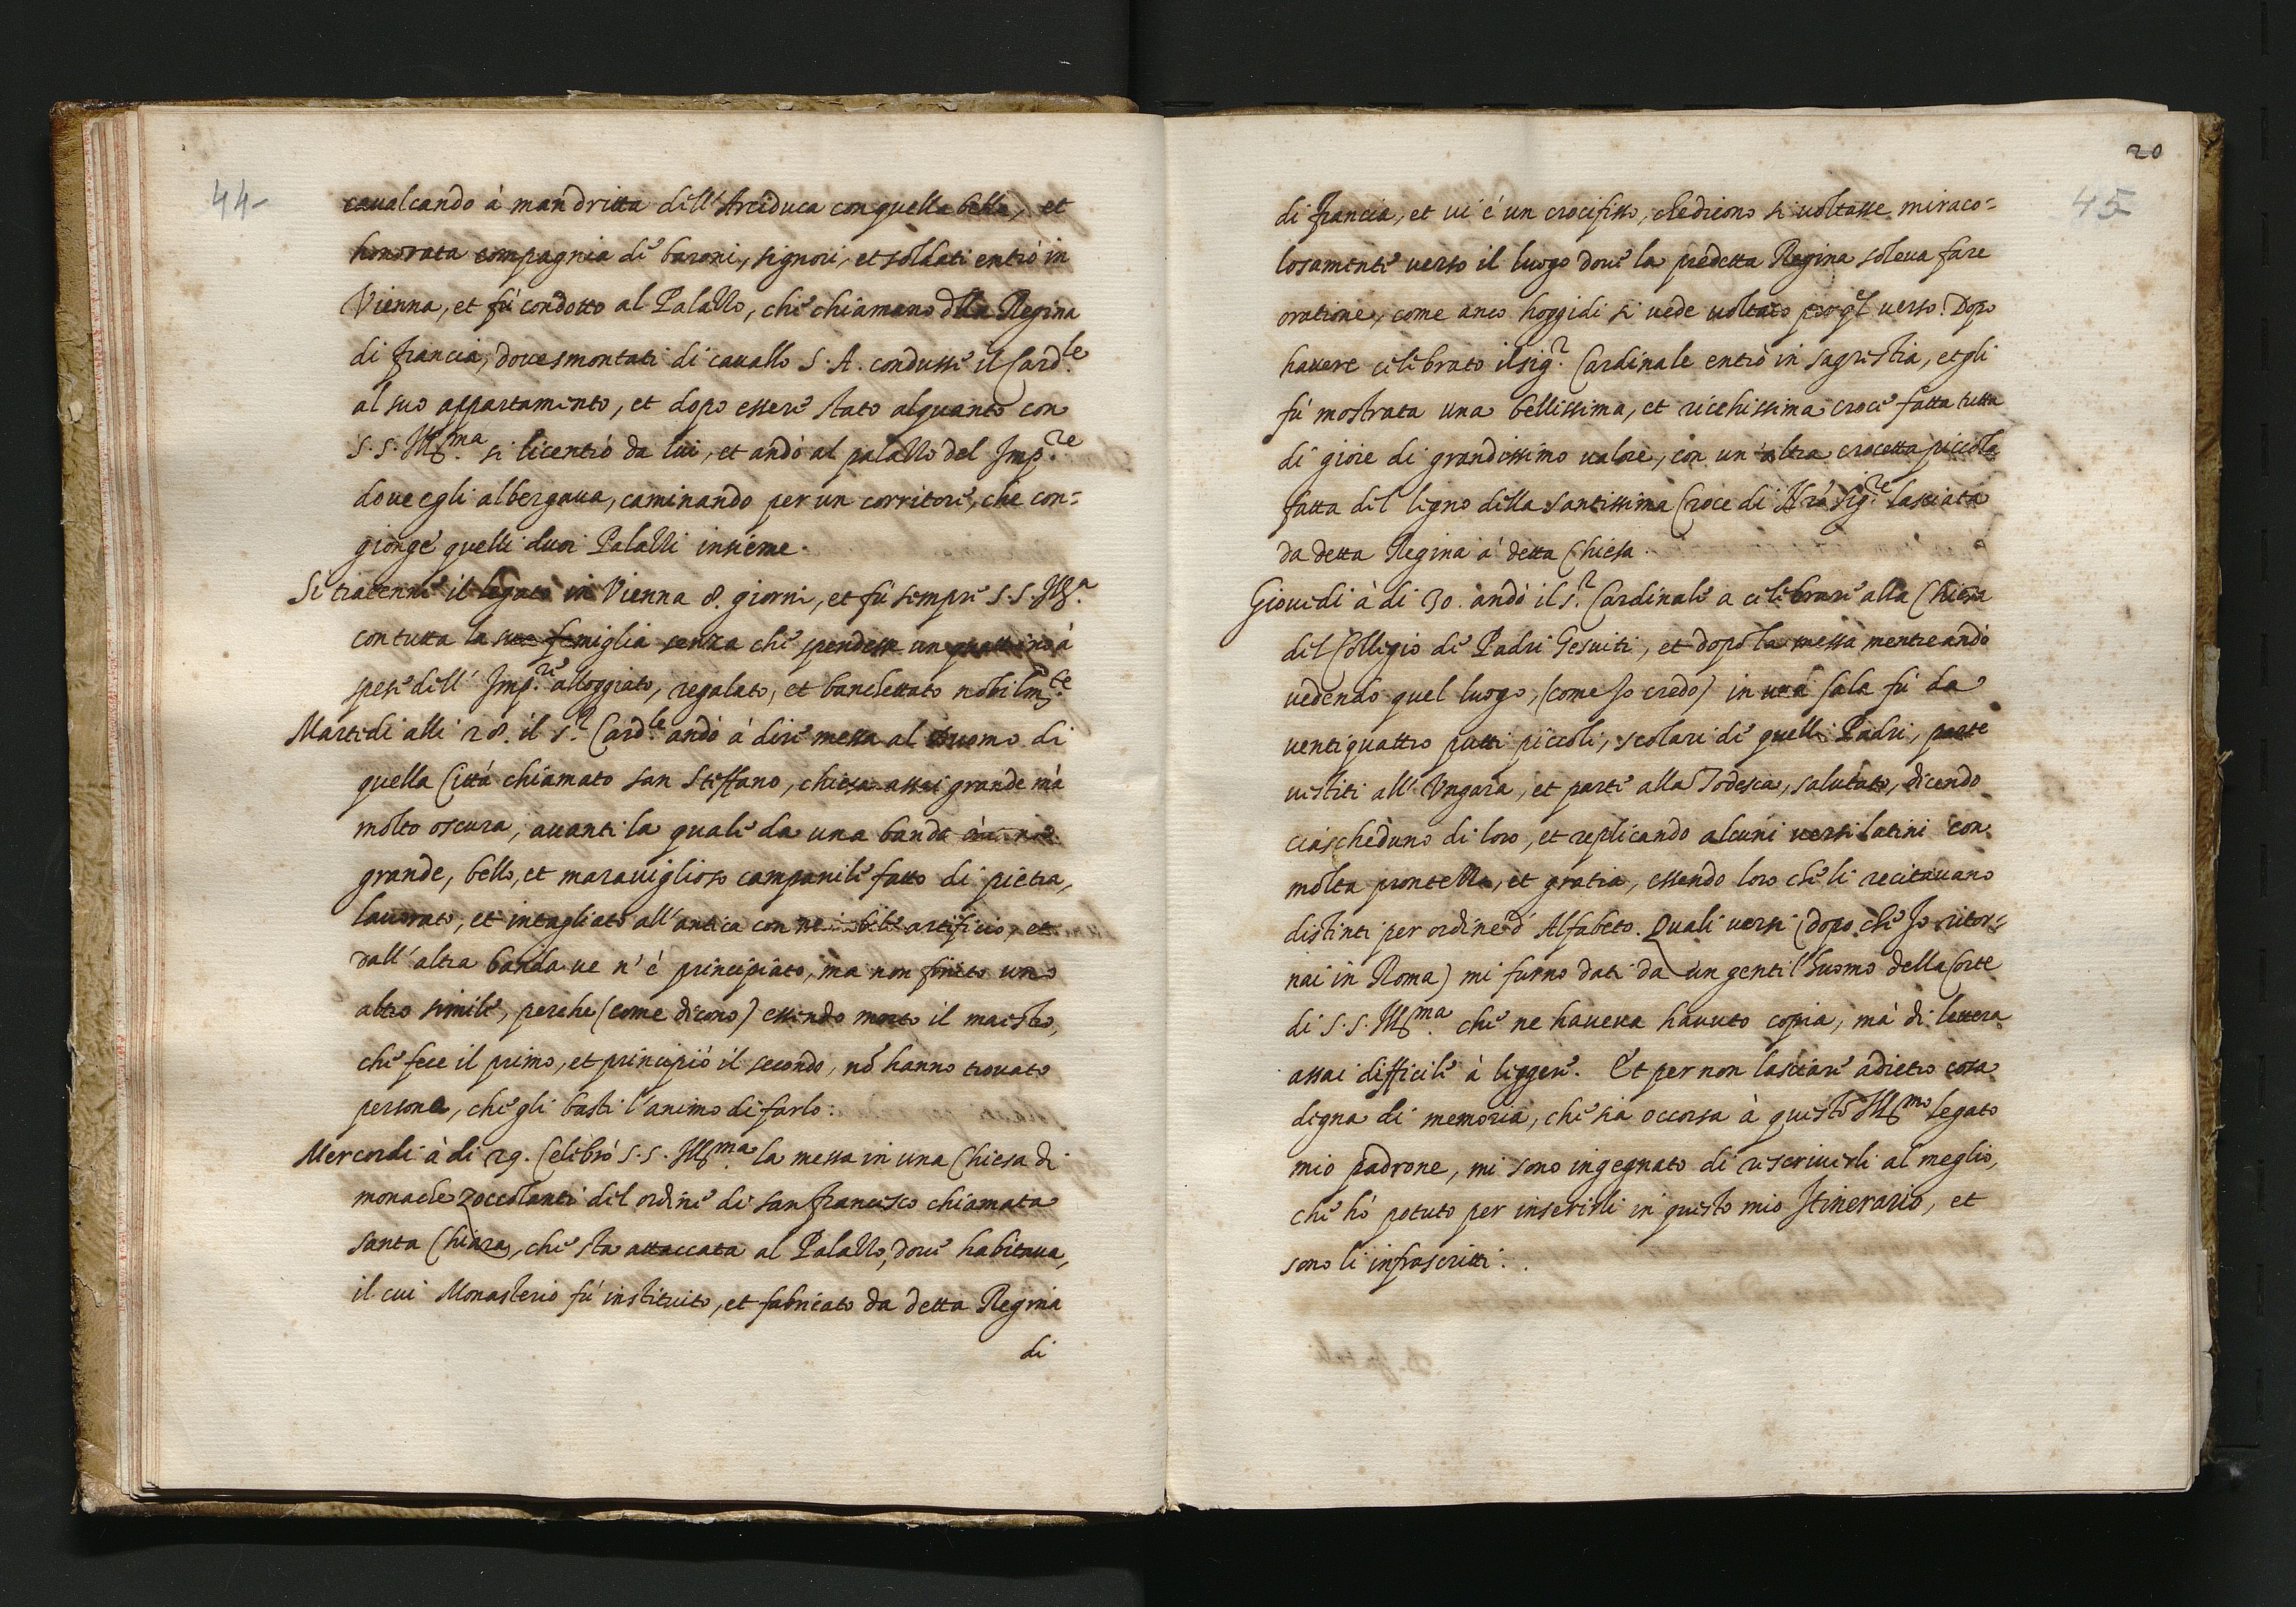 44-
cavalcando à man dritta dell'Arciduca con quella bella, et
honorata compagnia di baroni, signori, et soldati entrò in
Vienna, et fù condotto al Palazzo, che chiamano della Regina
di francia, dove smontati di cavallo S. A. condusse il Card.le
al suo appartamento, et dopo essere stato alquanto con
S. S. Ill.ma si licentiò da lui, et andò al palazzo del Imp.re
dove egli albergava, caminando per un corritore, che con=
gionge quelli duoi Palazzi insieme.
Si trattenne il legato in Vienna 8. giorni, et fù sempre S. S. Ill.a
con tutta la sua famiglia senza che spendesse un quattrino à
spese dell' Imp.re alloggiato, regalato, et banchettato nobilm.te
Martedi alli 28. il S.r Card.le andò à dire messa al Duomo di
quella Città chiamato san Steffano, chiesa assai grande mà
molto oscura, avanti la quale da una banda
grande, bello, et maraviglioso campanile fatto di pietra,
lavorato, et intagliato all'antica con artificio, et
dall'altra banda ve n'è principiato, ma non finito uno
altro simile, perche (come dicono) essendo morto il maestro,
che fece il primo, et principiò il secondo, nõ hanno trovato
persona, che gli basti l'animo di farlo.
Mercordi à di 29. Celebrò S. S. Ill.ma la messa in una Chiesa di
monache zoccolanti del ordine di san francesco chiamata
santa Chiara, che sta attaccata al Palazzo, dove habitava,
il cui Monasterio fù instituito, et fabricato da detta Regina
di
20
45
di francia, et vi è un crocifisso, che dicono si voltasse miraco=
losamente verso il luogo dove la predetta Regina soleva fare
oratione, come anco hoggidi si vede voltato verso. Dopo
havere celebrato il sig.r Cardinale entrò in sagristia, et gli
fù mostrata una bellissima, et ricchissima croce fatta tutta
di gioie di grandissimo valore, con un'altra crocetta piccola
fatta del legno della santissima Croce di Nro Sig.re lasciata
da detta Regina à detta Chiesa.
Giovedi à di 30. andò il S.r Cardinale a celebrare alla Chiesa
del Collegio de Padri Gesuiti, et dopo la messa mentre andò
vedendo quel luogo, (come Io credo) in una sala fù da
ventiquattro putti piccoli, scolari di quelli Padri, parte
vestiti all'Ungara, et parte alla Todesca, salutato, dicendo
ciascheduno di loro, et replicando alcuni versi latini con
molta prontezza, et gratia, essendo loro che li recitavano
distinti per ordine d'Alfabeto. Quali versi (dopo che Io ritor=
nai in Roma) mi furno dati da un gentil'huomo della Corte
di S. S. Ill.ma che ne haveva havuto copia, mà di lettera
assai difficile à leggere. Et per non lasciare adietro cosa
degna di memoria, che sia occorsa à questo Ill.mo legato
mio padrone, mi sono ingegnato di rescriverli al meglio,
che hò potuto per inserirli in questo mio Itinerario, et
sono li infrascritti.